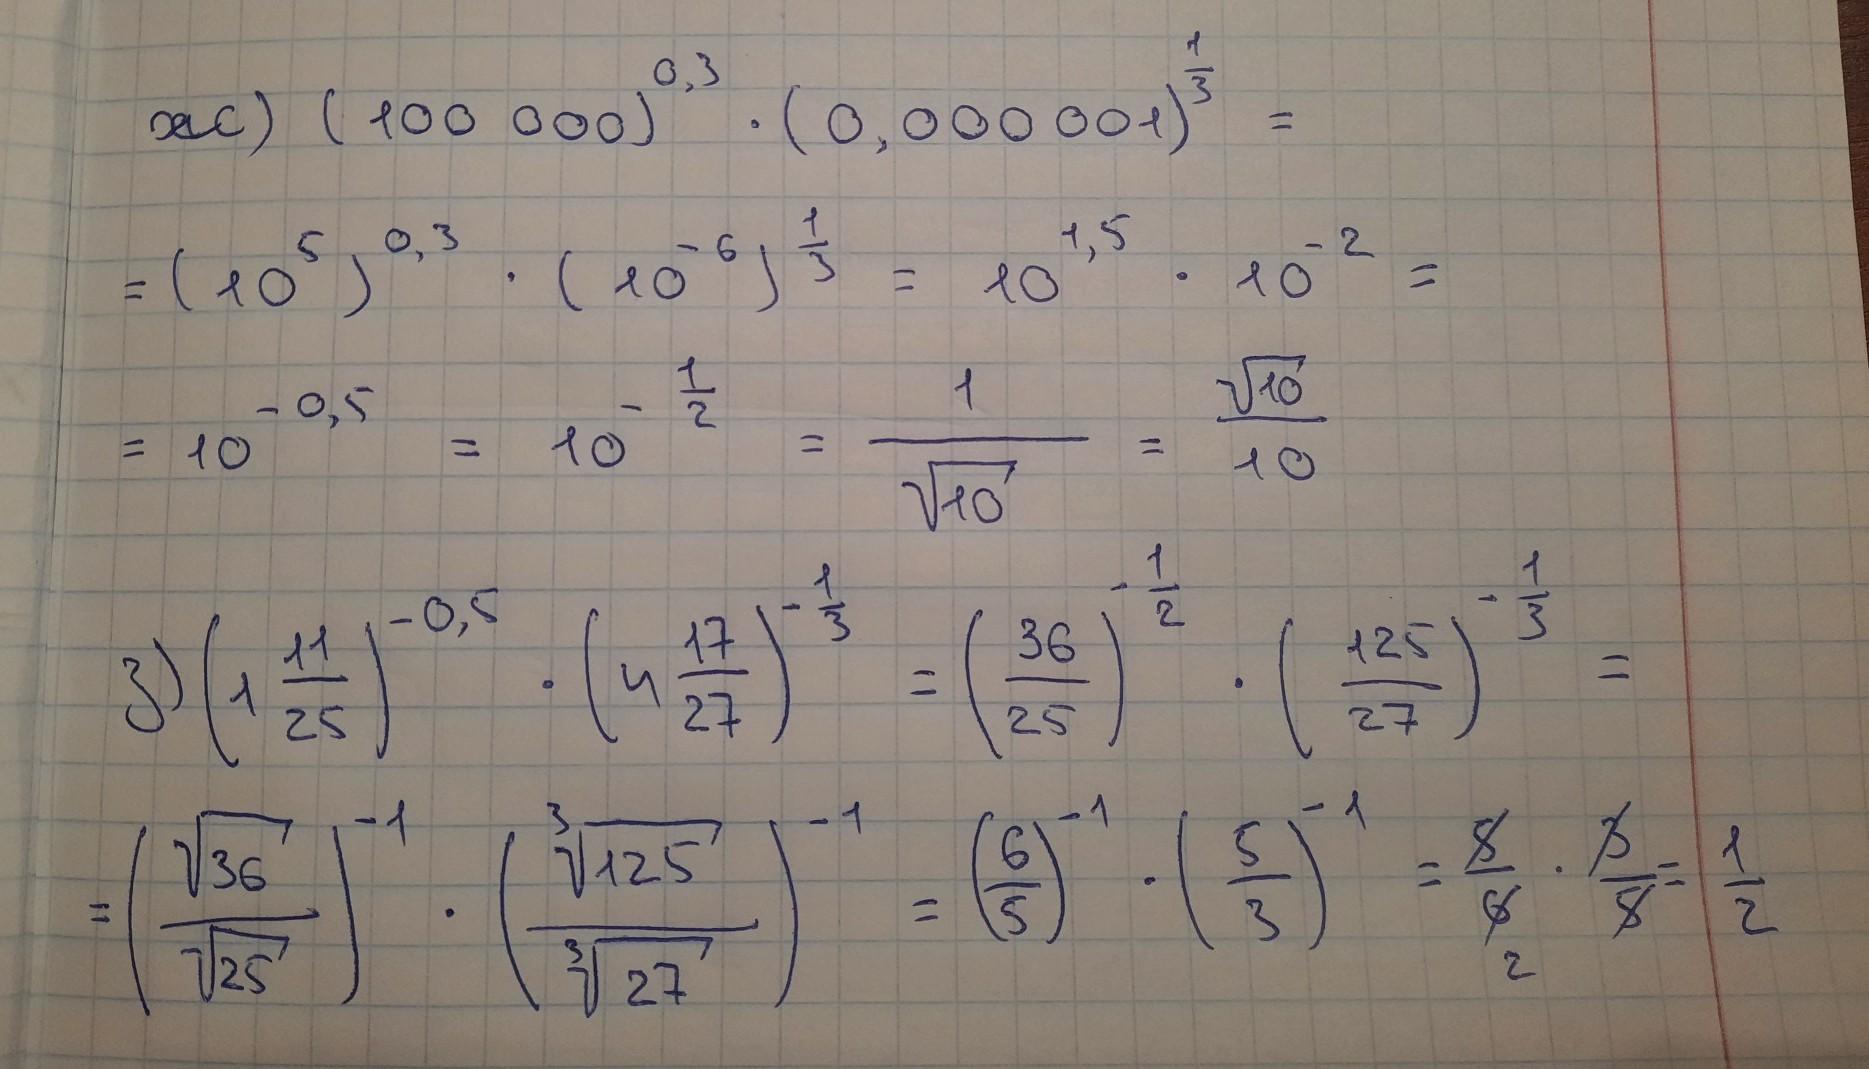 ж) (100 000)^{0,3} · (0,000 001)^{\frac{1}{3}} =
= (10^5)^{0,3} · (10^{-6})^{\frac{1}{3}} = 10^{1,5} · 10^{-2} =
= 10^{-0,5} = 10^{-\frac{1}{2}} = \frac{1}{\sqrt{10}} = \frac{\sqrt{10}}{10}
з) (1\frac{11}{25})^{-0,5} · (4\frac{17}{27})^{-\frac{1}{3}} = (\frac{36}{25})^{-\frac{1}{2}} · (\frac{125}{27})^{-\frac{1}{3}} =
= (\frac{\sqrt{36}}{\sqrt{25}})^{-1} · (\frac{\sqrt[3]{125}}{\sqrt[3]{27}})^{-1} = (\frac{6}{5})^{-1} · (\frac{5}{3})^{-1} = \frac{5}{6} · \frac{3}{5} = \frac{1}{2}
2